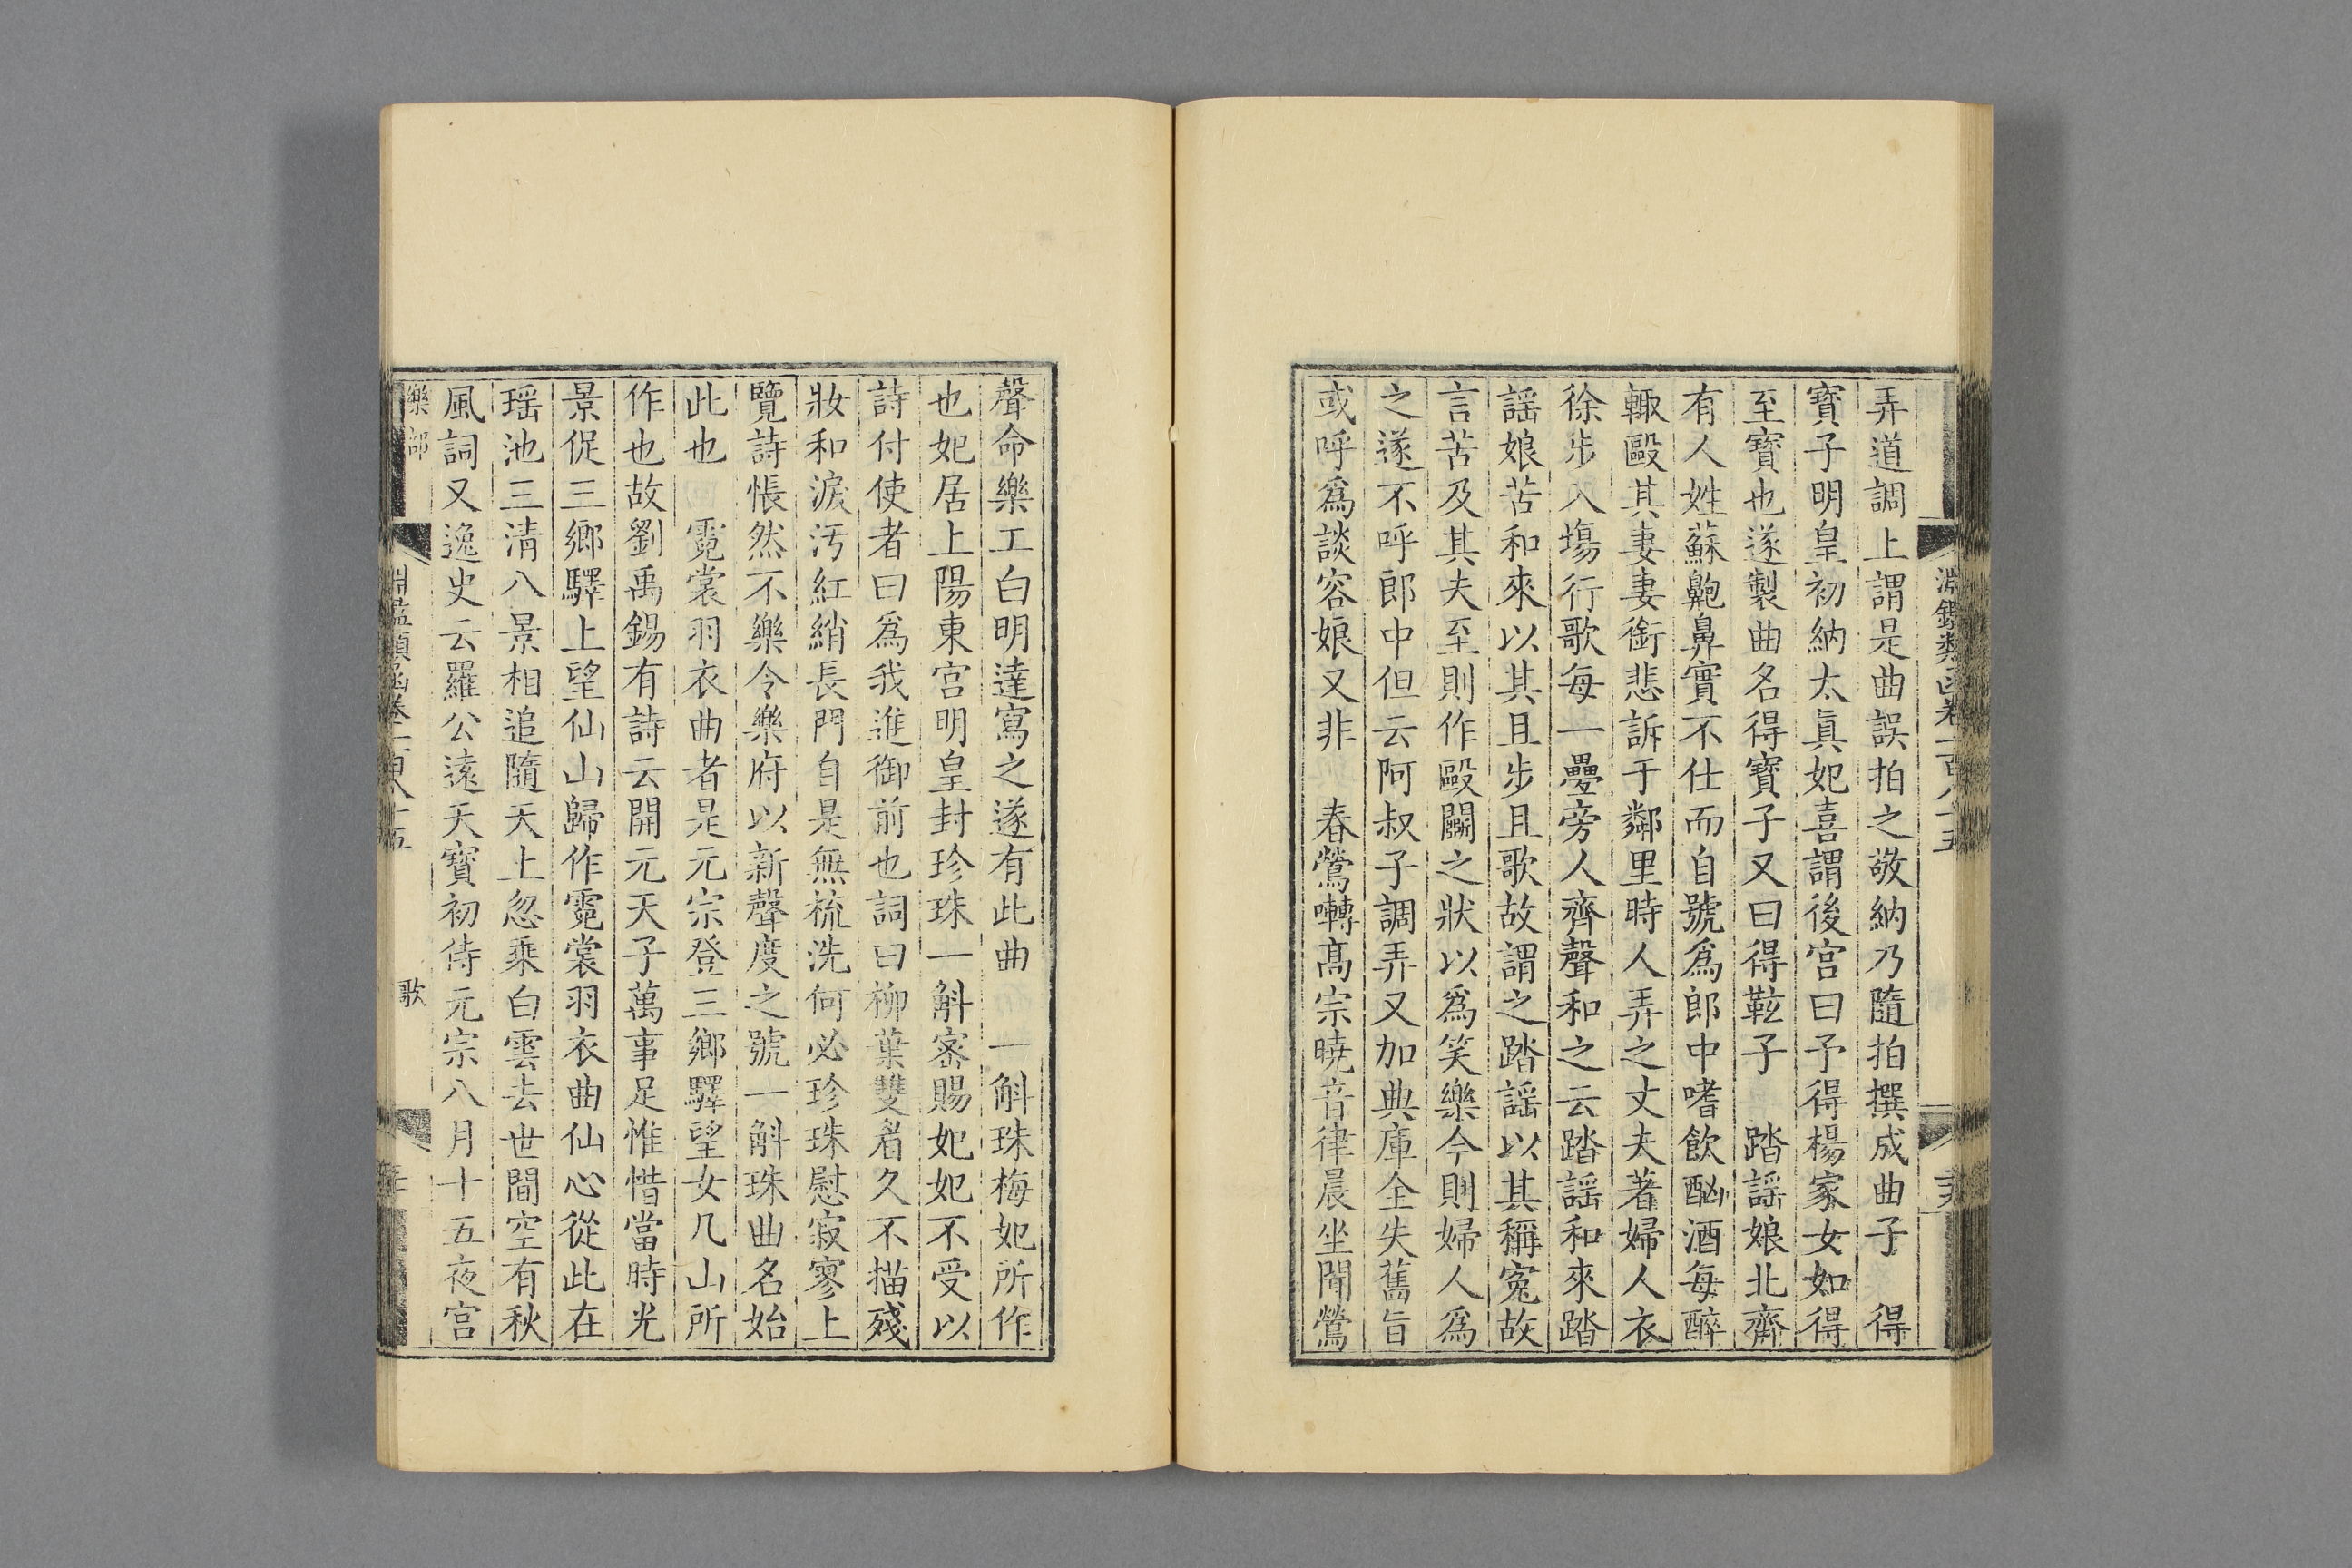 弄道調上謂是曲誤拍之敬納乃隨拍撰成曲子　得
寳子明皇初納太真妃喜謂後宫曰予得楊家女如得
至寳也遂製曲名得寳子又曰得鞛子　踏謡娘北齊
有人姓蘇䶌鼻實不仕而自號爲郎中嗜飲酗酒每醉
輙毆其妻妻銜悲訴于鄰里時人弄之丈夫著婦人衣
徐步入塲行歌每一疊旁人齊聲和之云踏謡和來踏
謡娘苦和來以其且步且歌故謂之踏謡以其稱寃故
言苦及其夫至則作毆鬭之狀以爲笑樂今則婦人爲
之遂不呼郎中但云阿叔子調弄又加典庫全失舊旨
或呼爲談容娘又非　春鶯囀髙宗曉音律晨坐聞鶯
聲命樂工白明達寫之遂有此曲　一斛珠梅妃所作
也妃居上陽東宫明皇封珍珠一斛宻賜妃妃不受以
詩付使者曰爲我進御前也詞曰柳葉雙眉久不描殘
妝和淚汚紅綃長門自是無梳洗何必珍珠慰寂寥上
覽詩悵然不樂令樂府以新聲度之號一斛珠曲名始
此也　霓裳羽衣曲者是元宗登三鄉驛望女几山所
作也故劉禹錫有詩云開元天子萬事足惟惜當時光
景促三鄉驛上望仙山歸作霓裳羽衣曲仙心從此在
瑶池三清八景相追隨天上忽乘白雲去世間空有秋
風詞又逸史云羅公遠天寳初侍元宗八月十五夜宫
樂部　歌